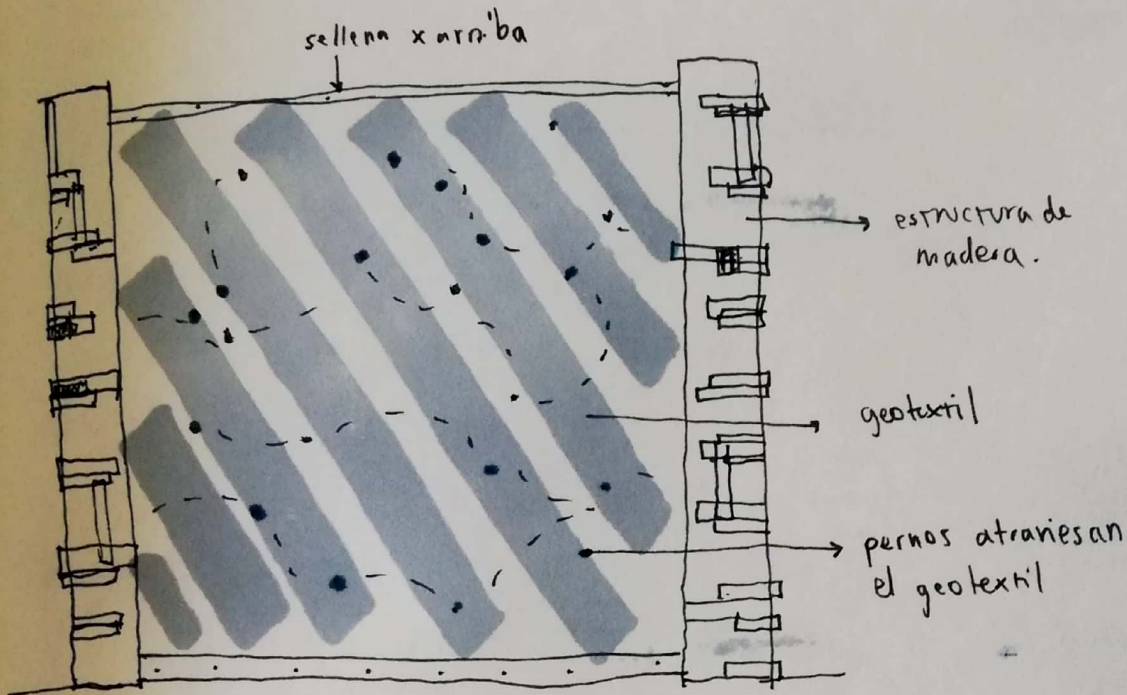 sellena x arriba
estructura de
madera.
geotextil
pernos atraviesan
el geotextil